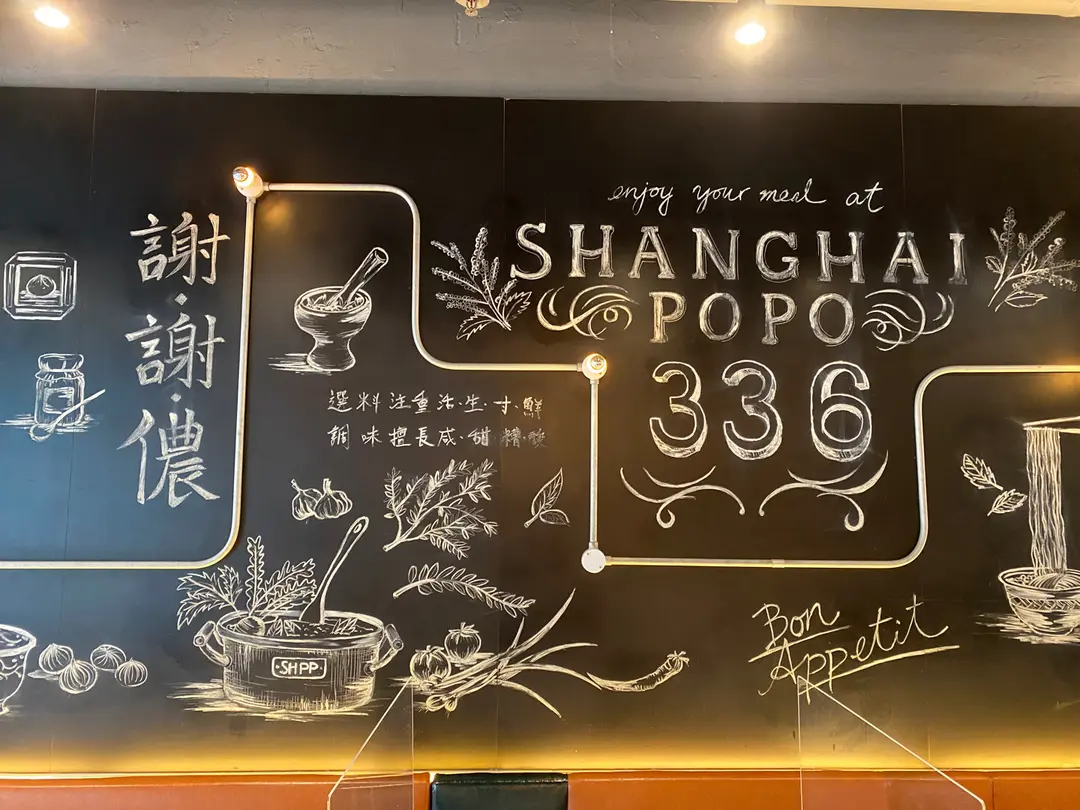 謝·謝·儂
選料注重活·生·寸·鮮
調味擅長咸·甜·糟·酸
enjoy your meal at
SHANGHAI
POPO
336
·SHPP·
Bon
Appetit